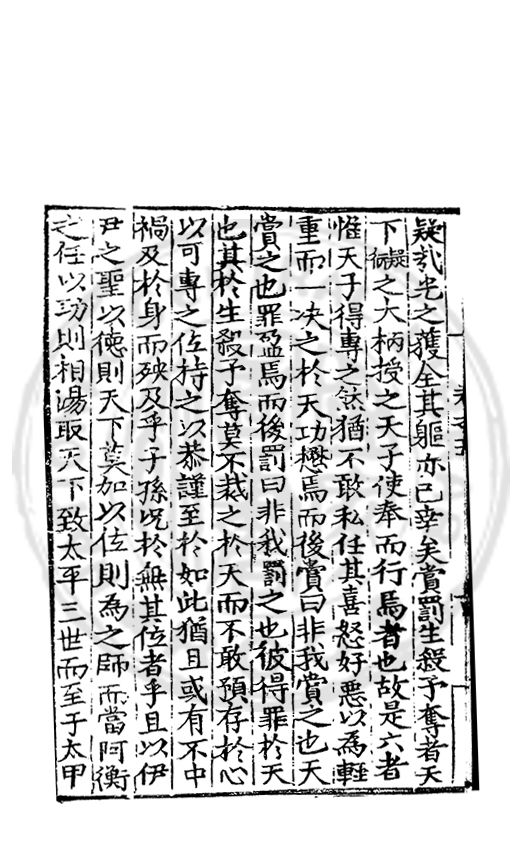 疑哉光之獲全其軀亦已幸矣賞罰生殺予奪者天
下疑衍之大柄授之天子使奉而行焉者也故是六者
惟天子得專之然猶不敢私任其喜怒好惡以為輕
重而一决之於天功懋焉而後賞曰非我賞之也天
賞之也罪盈焉而後罰曰非我罰之也彼得罪於天
也其於生殺予奪莫不裁之於天而不敢預存於心
以可專之位持之以恭謹至於如此猶且或有不中
禍及於身而殃及乎子孫况於無其位者乎且以伊
尹之聖以德則天下莫加以位則為之師而當阿衡
之任以功則相湯取天下致太平三世而至于太甲